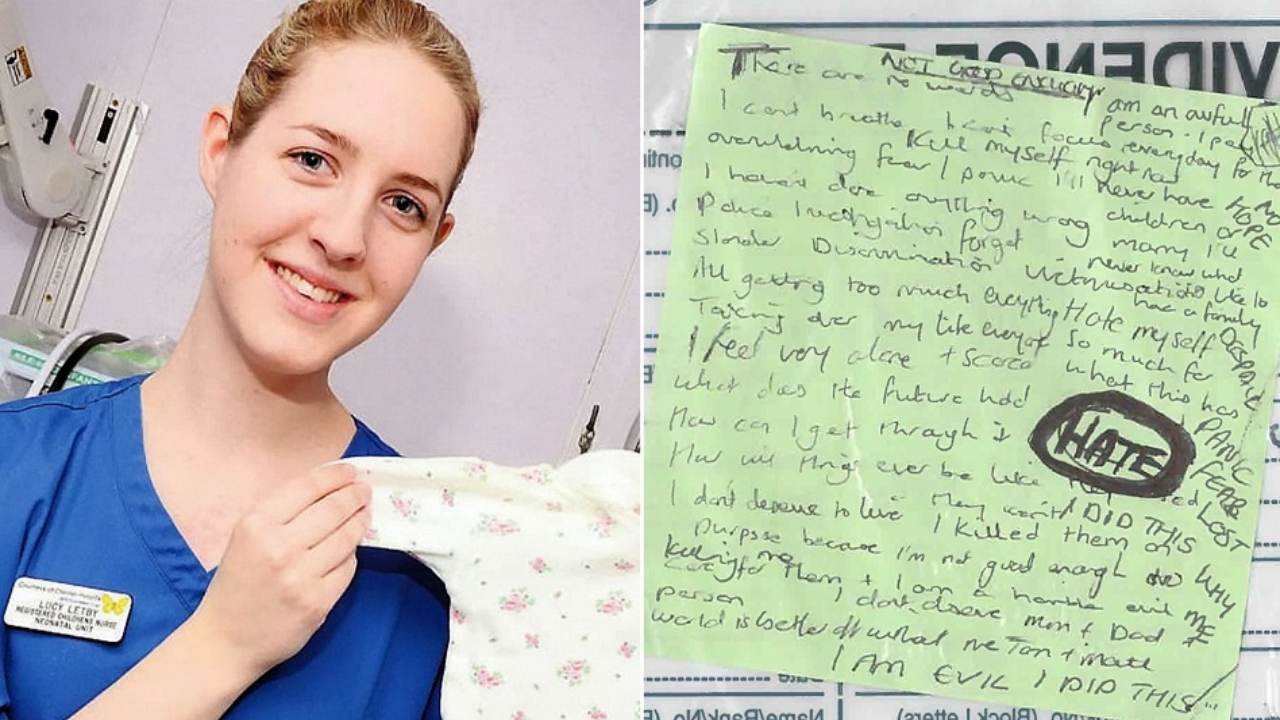 Countess of Chester Hospital
LUCY LETBY
REGISTERED CHILDRENS NURSE
NEONATAL UNIT
EVIDENCE
NOT GOOD ENOUGH
There are no words
am an awful person. I pay
I cant breathe I cant focus everyday for that
Kill myself right now
overwhelming fear / panic I'll never have
HOPE
I haven't done anything wrong children or marry I'll
Police investigation forget never know what
Slander Discrimination Victimisation its like to
have a family
All getting too much everything Hate myself
DESPAIR
Taking over my life everyone so much for
I feel very alone + scared what this has
What does the future hold
PANIC
How can I get through it
HATE
FEAR
How will things ever be like
LOST
I don't deserve to live They won't I DID THIS
I killed them on
WHY
purpose because I'm not good enough to
ME
care for them + I am a horrible evil
person I don't deserve mum + Dad
world is better off without me
I AM EVIL I DID THIS
Date
Name/Rank/No
(Block Letters)